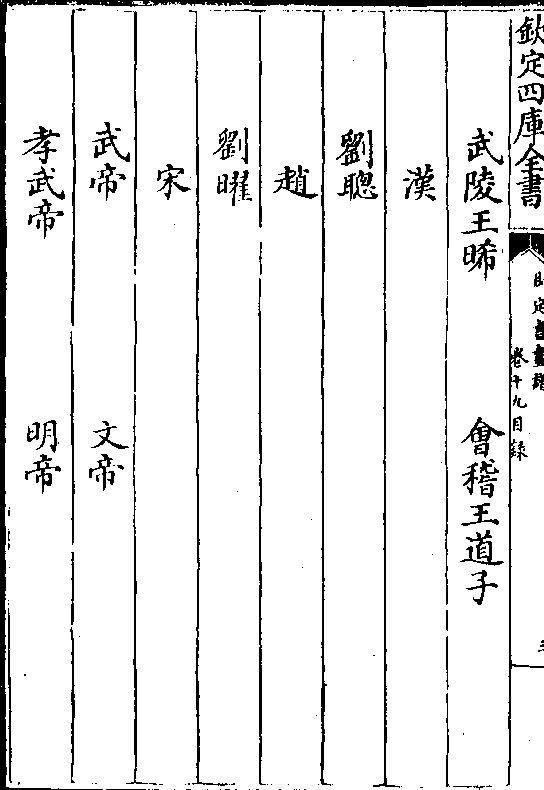 欽定四庫全書
卷十九目録
武陵王晞 會稽王道子
漢
劉聰
趙
劉曜
宋
武帝 文帝
孝武帝 明帝